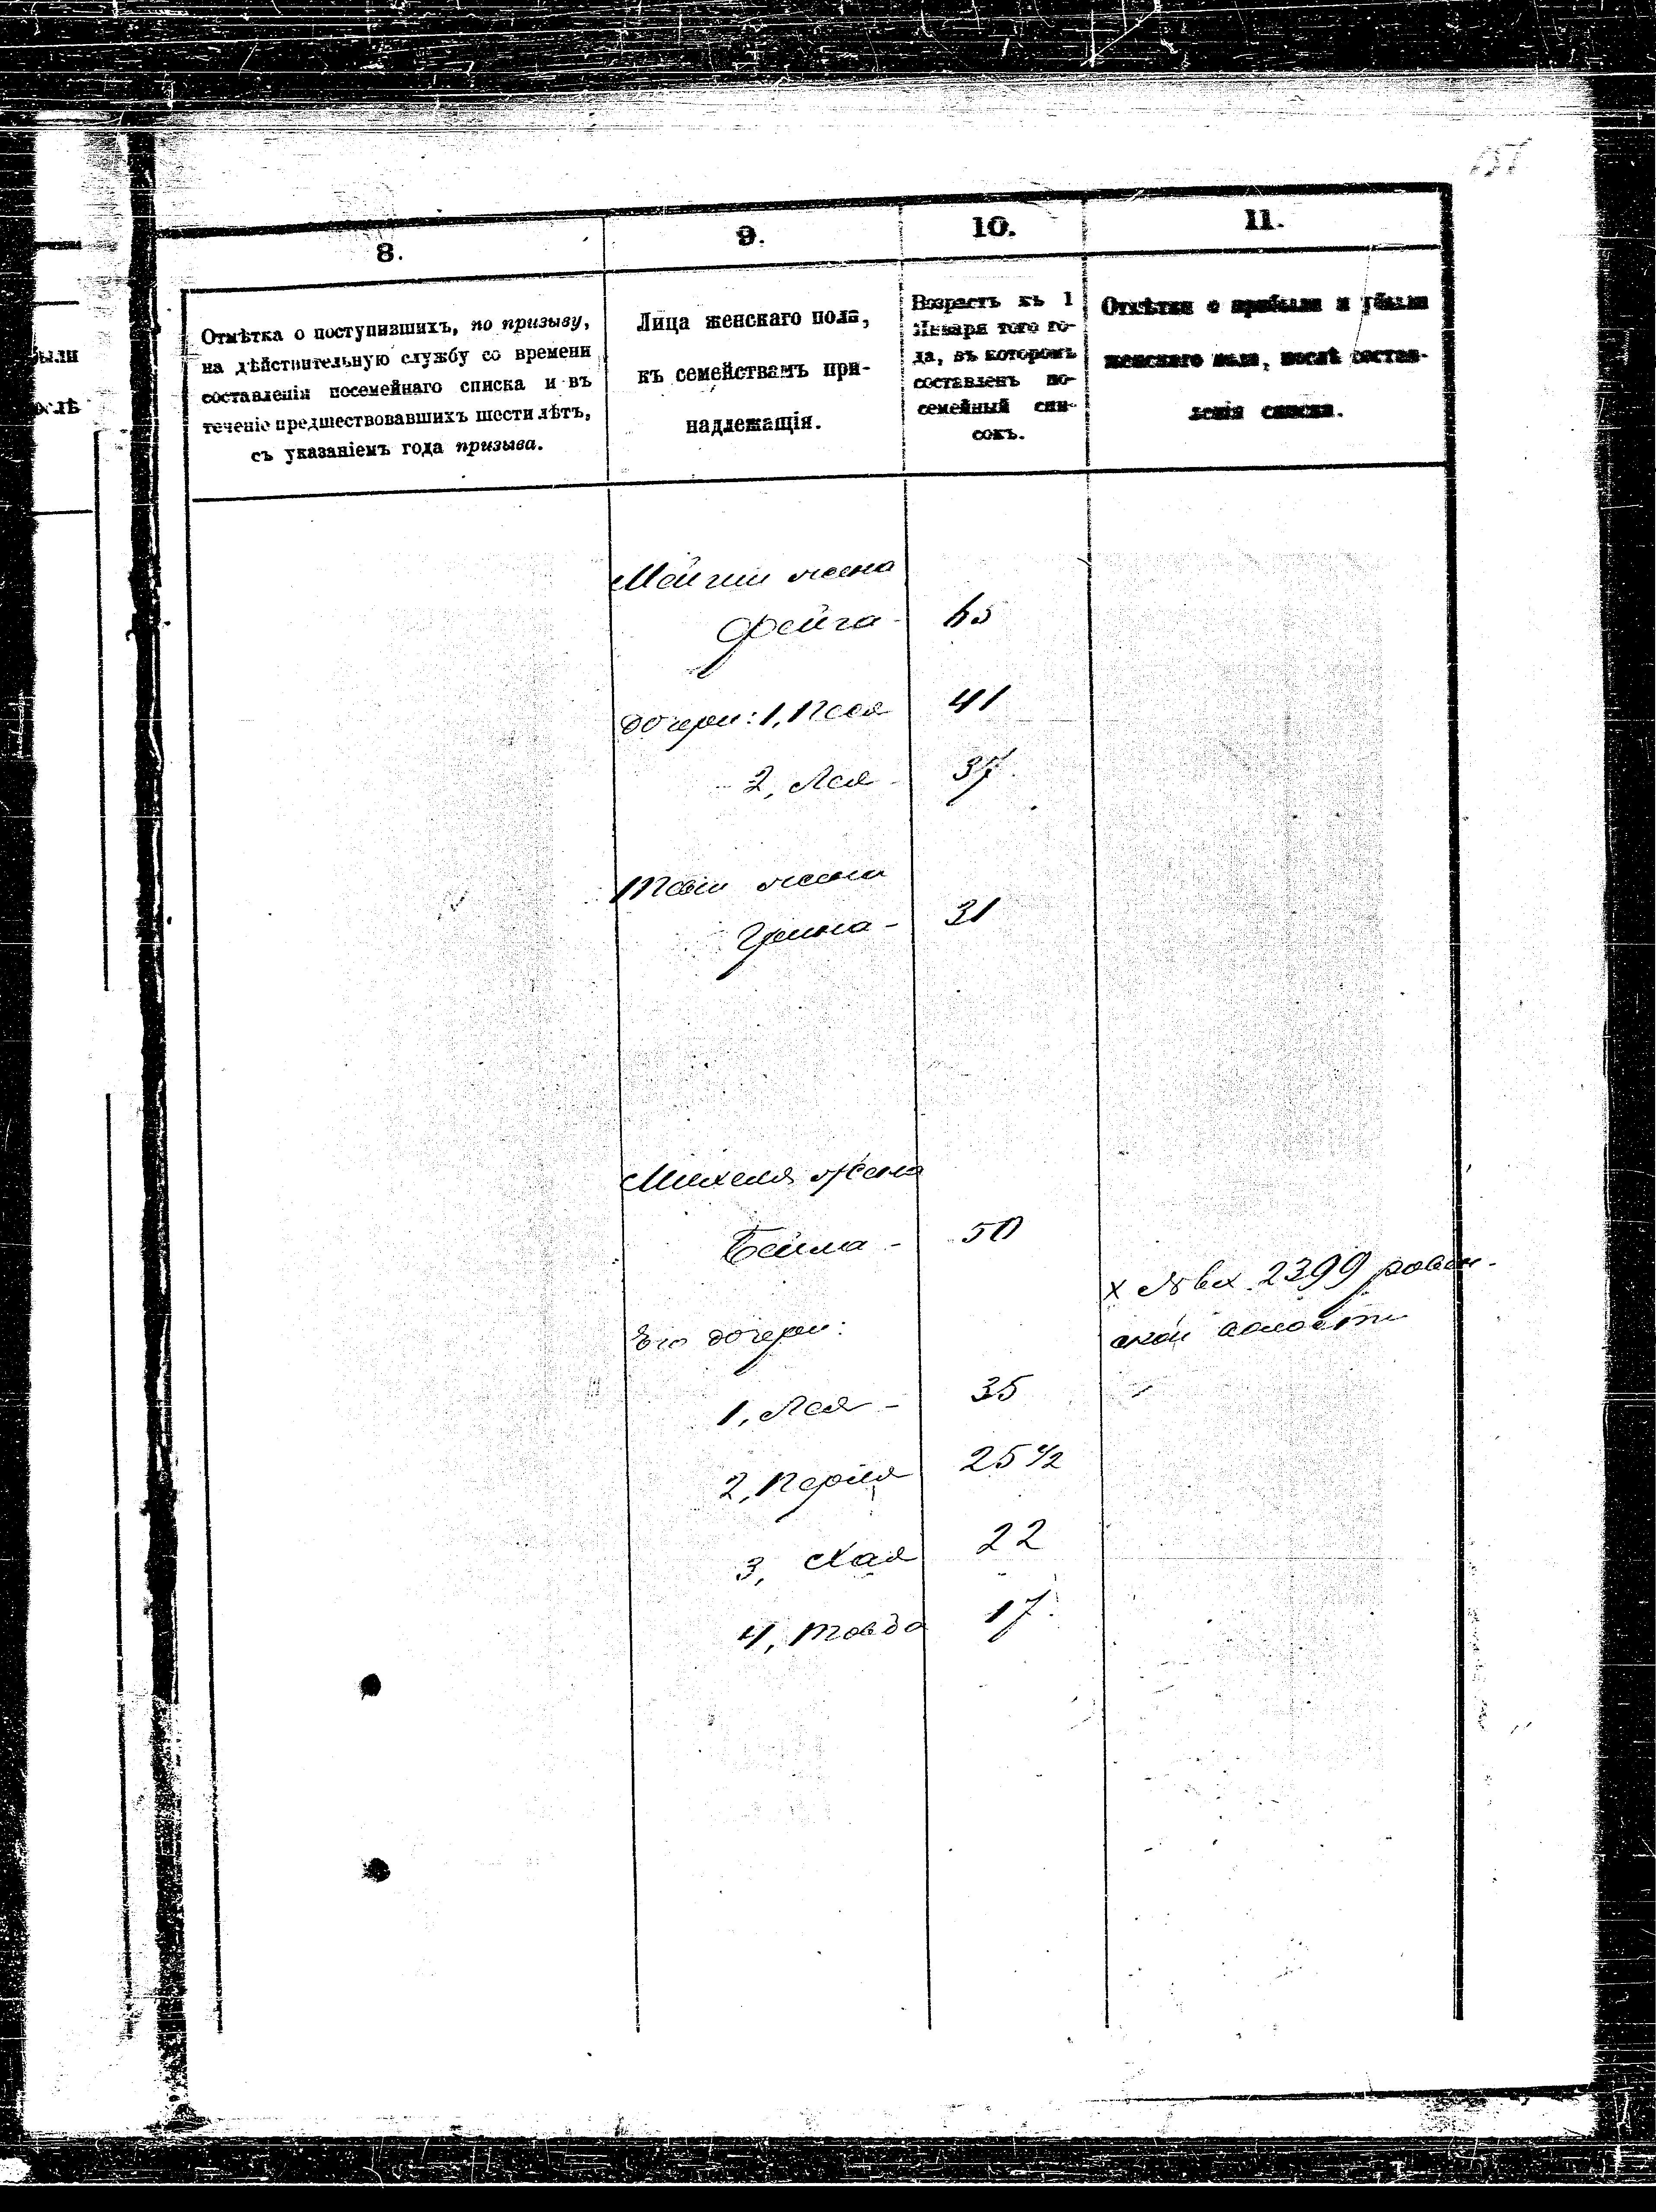 8.
9.
10.
11.
Отмѣтка о поступившихъ, по призыву,
на дѣйствительную службу со времени
составленія посемейнаго списка и въ
теченіе предшествовавшихъ шести лѣтъ,
съ указаніемъ года призыва.
Лица женскаго пола,
къ семействамъ при-
надлежащія.
Возрастъ къ 1
Января того го-
да, въ которомъ
составленъ по-
семейный спи-
сокъ.
Отмѣтки о прибыли и убыли
женскаго пола, послѣ состав-
ленія списка.
были
ослѣ
жена
Фейга - 65
дочери: 1, Песя 41
2, Лея - 37.
жена
31
Михеля жена
Бейла - 50
Его дочери:
х № вх. 2399 ровен-
ской волости
1, Лея - 35
2, Перля 25 1/2
3, Хая 22
4, 17.